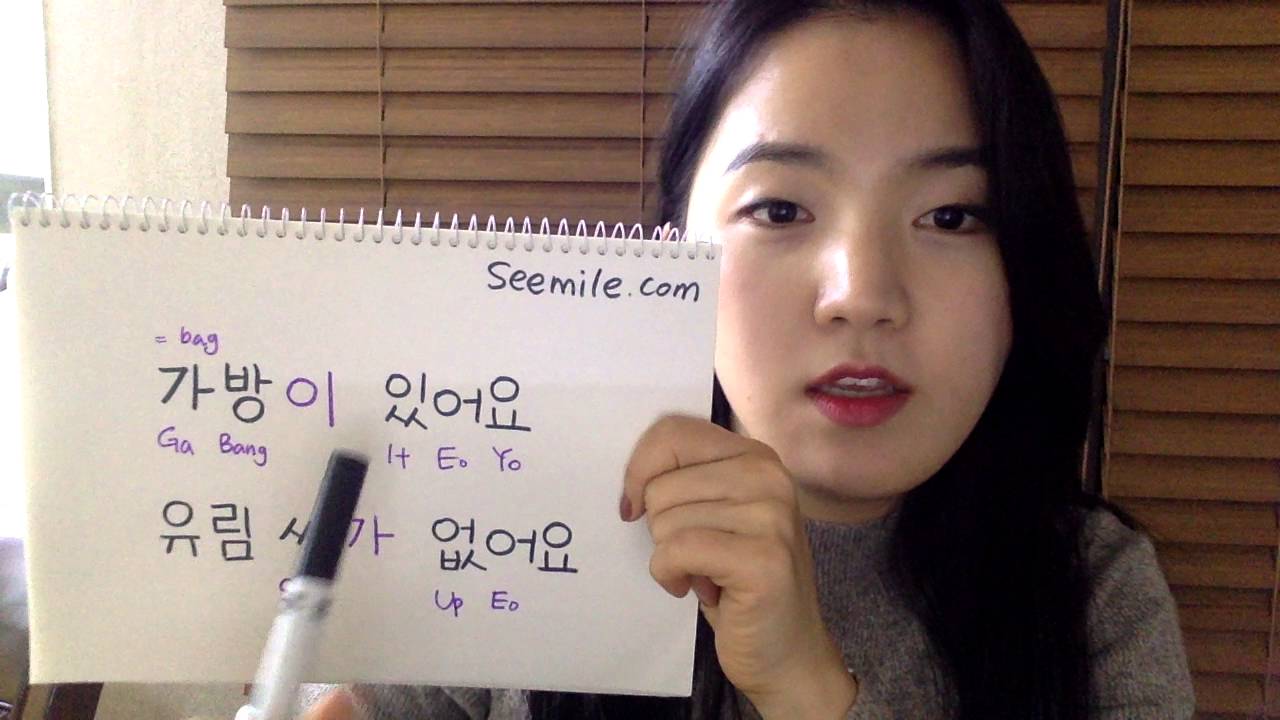 Seemile.com
= bag
가방이 있어요
Ga Bang It Eo Yo
유림 가 없어요
Up Eo